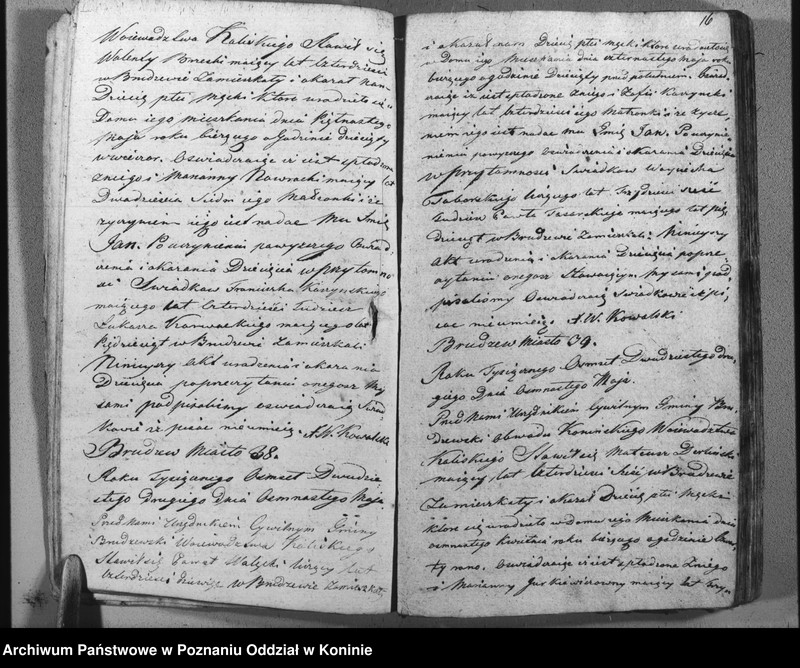 Woiewodztwa Kaliskiego Stawił się
Walenty maiący lat czterdzieści
w Brudzewie Zamieszkały i okazał nam
Dziecię płci męski które urodziło się w
Domu iego mieszkania dnia Piętnastego
Maja roku bieżącego o Godzinie dziesiąty
wwieczor. Oswiadczaiąc iż iest spłodzone
zniego i Maryanny Nawrocki maiący lat
Dwadzieścia Siedm iego Małżonki i że
życzeniem iego iest nadac Mu Imię
Jan. Po uczynieniu powyższego Oswiad
czenia i okazania Dziecięcia w przytomno
sci Swiadkow Franciszka
maiącego lat Czterdzieści tudzież
Łukasza maiącego lat
Pięćdziesiąt w Brudzewie Zamieszkali
Niniejszy Akt urodzenia i okazania
Dziecięcia poprzeczytaniu onegoż My
sami podpisalismy oswiadczaią Swia
dkowie że pisac nieumieią. A.W. Kowalski
Brudzew Miasto 38.
Roku Tysiącznego Osmset Dwudzie
stego drugiego Dnia Osmnastego Maja
Przed Nami Urzędnikiem Cywilnym Gminy
Brudzewski Woiewodztwa Kaliskiego
Stawił się Paweł liczący lat
Czterdzieści dziewięć w Brudzewie Zamieszkały
16
i okazał nam Dziecię płci męski które urodziło się
w Domu iego Mieszkania dnia czternastego Maja roku
bieżącego o godzinie Dziesiąty przed południem. Oswiad
czaiąc iż iest spłodzone zniego i Zofii
maiący lat czterdzieści iego Małżonki i że życze
niem iego iest nadac mu Imię Jan. Po uczy
nieniu powyższego oswiadczenia i okazania Dziecięcia
w przytomnosci Swiadkow Woyciecha
Taborskiego liczącego lat Trzydzieści sześć
tudzież maiącego lat pięć
dziesiąt w Brudzewie Zamieszkali. Niniejszy
Akt urodzenia i okazania Dziecięcia poprze
czytaniu onegoż Stawaiącym My sami pod
pisalismy Oswiadczaią Swiadkowie iż pi
sac nieumieią. A.W. Kowalski
Brudzew Miasto 39.
Roku Tysiącznego Osmset Dwudziestego dru
giego Dnia Osmnastego Maja
Przed Nami Urzędnikiem Cywilnym Gminy Bru
dzewski obwodu Konińskiego Woiewodztwa
Kaliskiego Stawił się Mateusz
maiący lat Czterdzieści Sześć w Brudzewie
Zamieszkały i okazał Dziecię płci Męski
które się urodziło w domu iego Mieszkania dnia
osmnastego Kwietnia roku bieżącego o godzinie Czwar
ty rano. Oswiadczaiąc iż iest spłodzone Zniego
i Maryanny maiący lat
Archiwum Państwowe w Poznaniu Oddział w Koninie